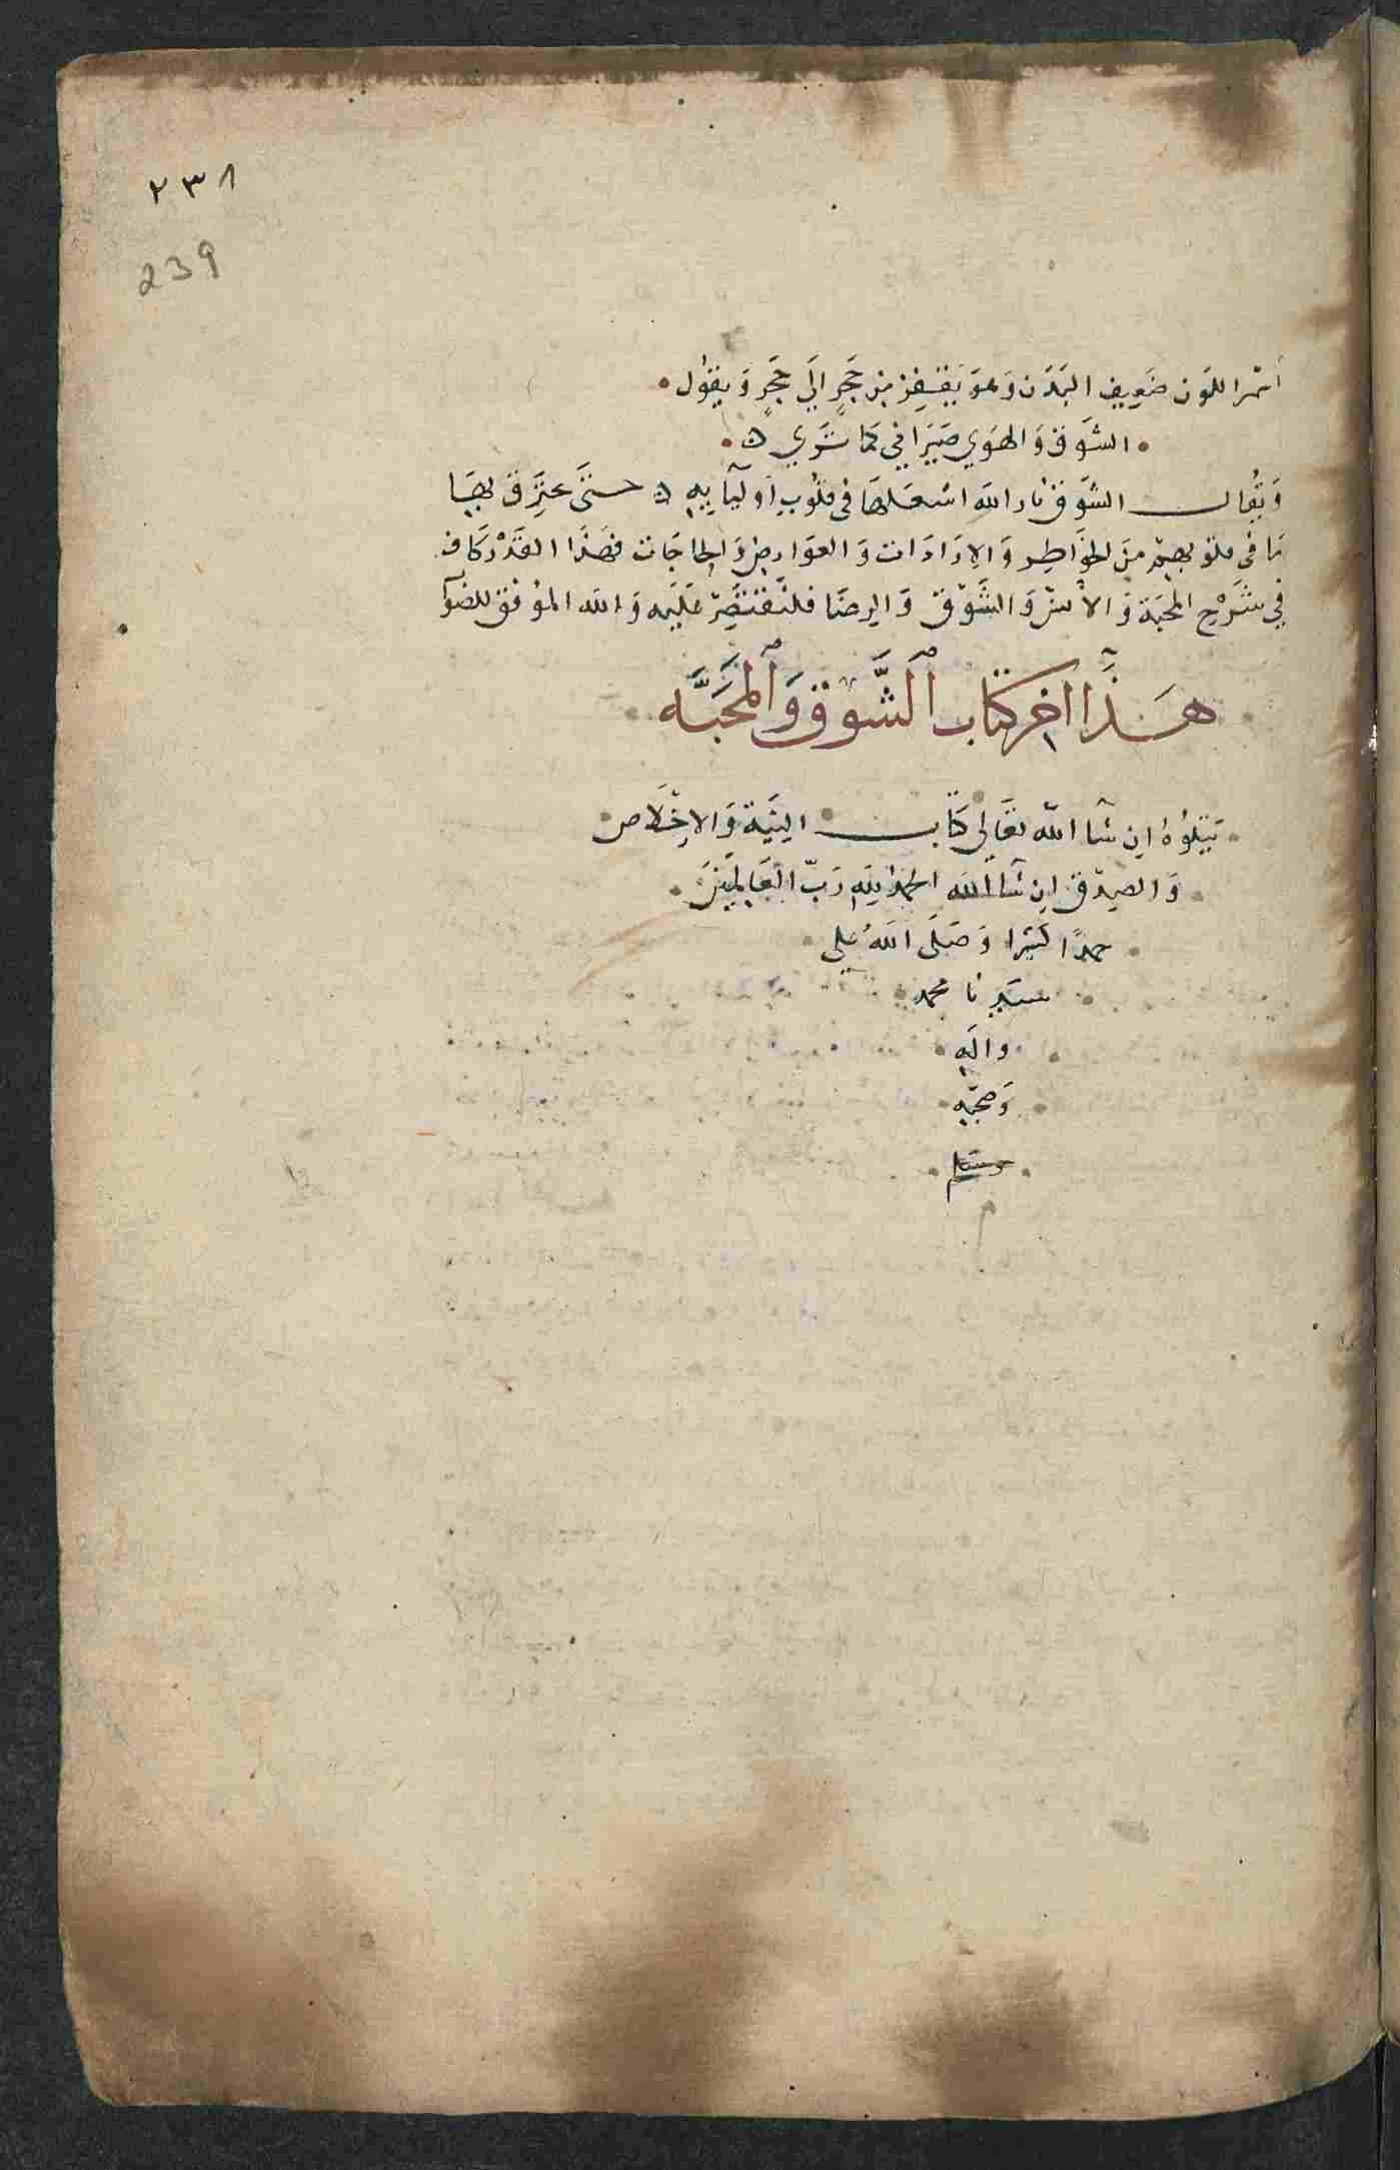 ٢٣٨
239
أسْمر اللَون ضَعِيف البَدَن وَهوَ يَقفِز مِن حَجَرٍ اليَ حَجَرٍ وَ يقوُل
الشوَق وَ الهَوَي صَيَرَاني كمَا تَرَي ه
وَ يُقال الشوَق نَار الله اشعَلهَا فى قلوُبِ أوليَآيِهِ ه حَتىَّ يحَرِق بهَا
مَا فى قلوُبهِمْ مِنَ الخوَاطِر وَ الاِرَادَات وَ العوَارِض وَ الحاجَات فهَذَا القَدْر كَاف
فِي شَرْحِ المحَبَة وَ الأُنس وَ الشَوْق وَ الرِضَا فلنَقْتَصِرْ عَلَيْه وَ الله الموُفق للصَوَاب
هَذَا اخِر كتَاب الشَّوق وَ المحَبَّه
يَتلوُهُ اِن شَا الله تعَالى كتَاب النِيَّة وَ الاِخْلَاص
وَ الصِدْق اِن شَآ الله الحمَدُ لِلَّهِ رَبّ العَالمَينَ
حمدًا كثيَرا وَ صَلىَ اللهُ على
سَيدِنا محمد
و الِهِ
وَ صَحْبِهِ
وسَلم